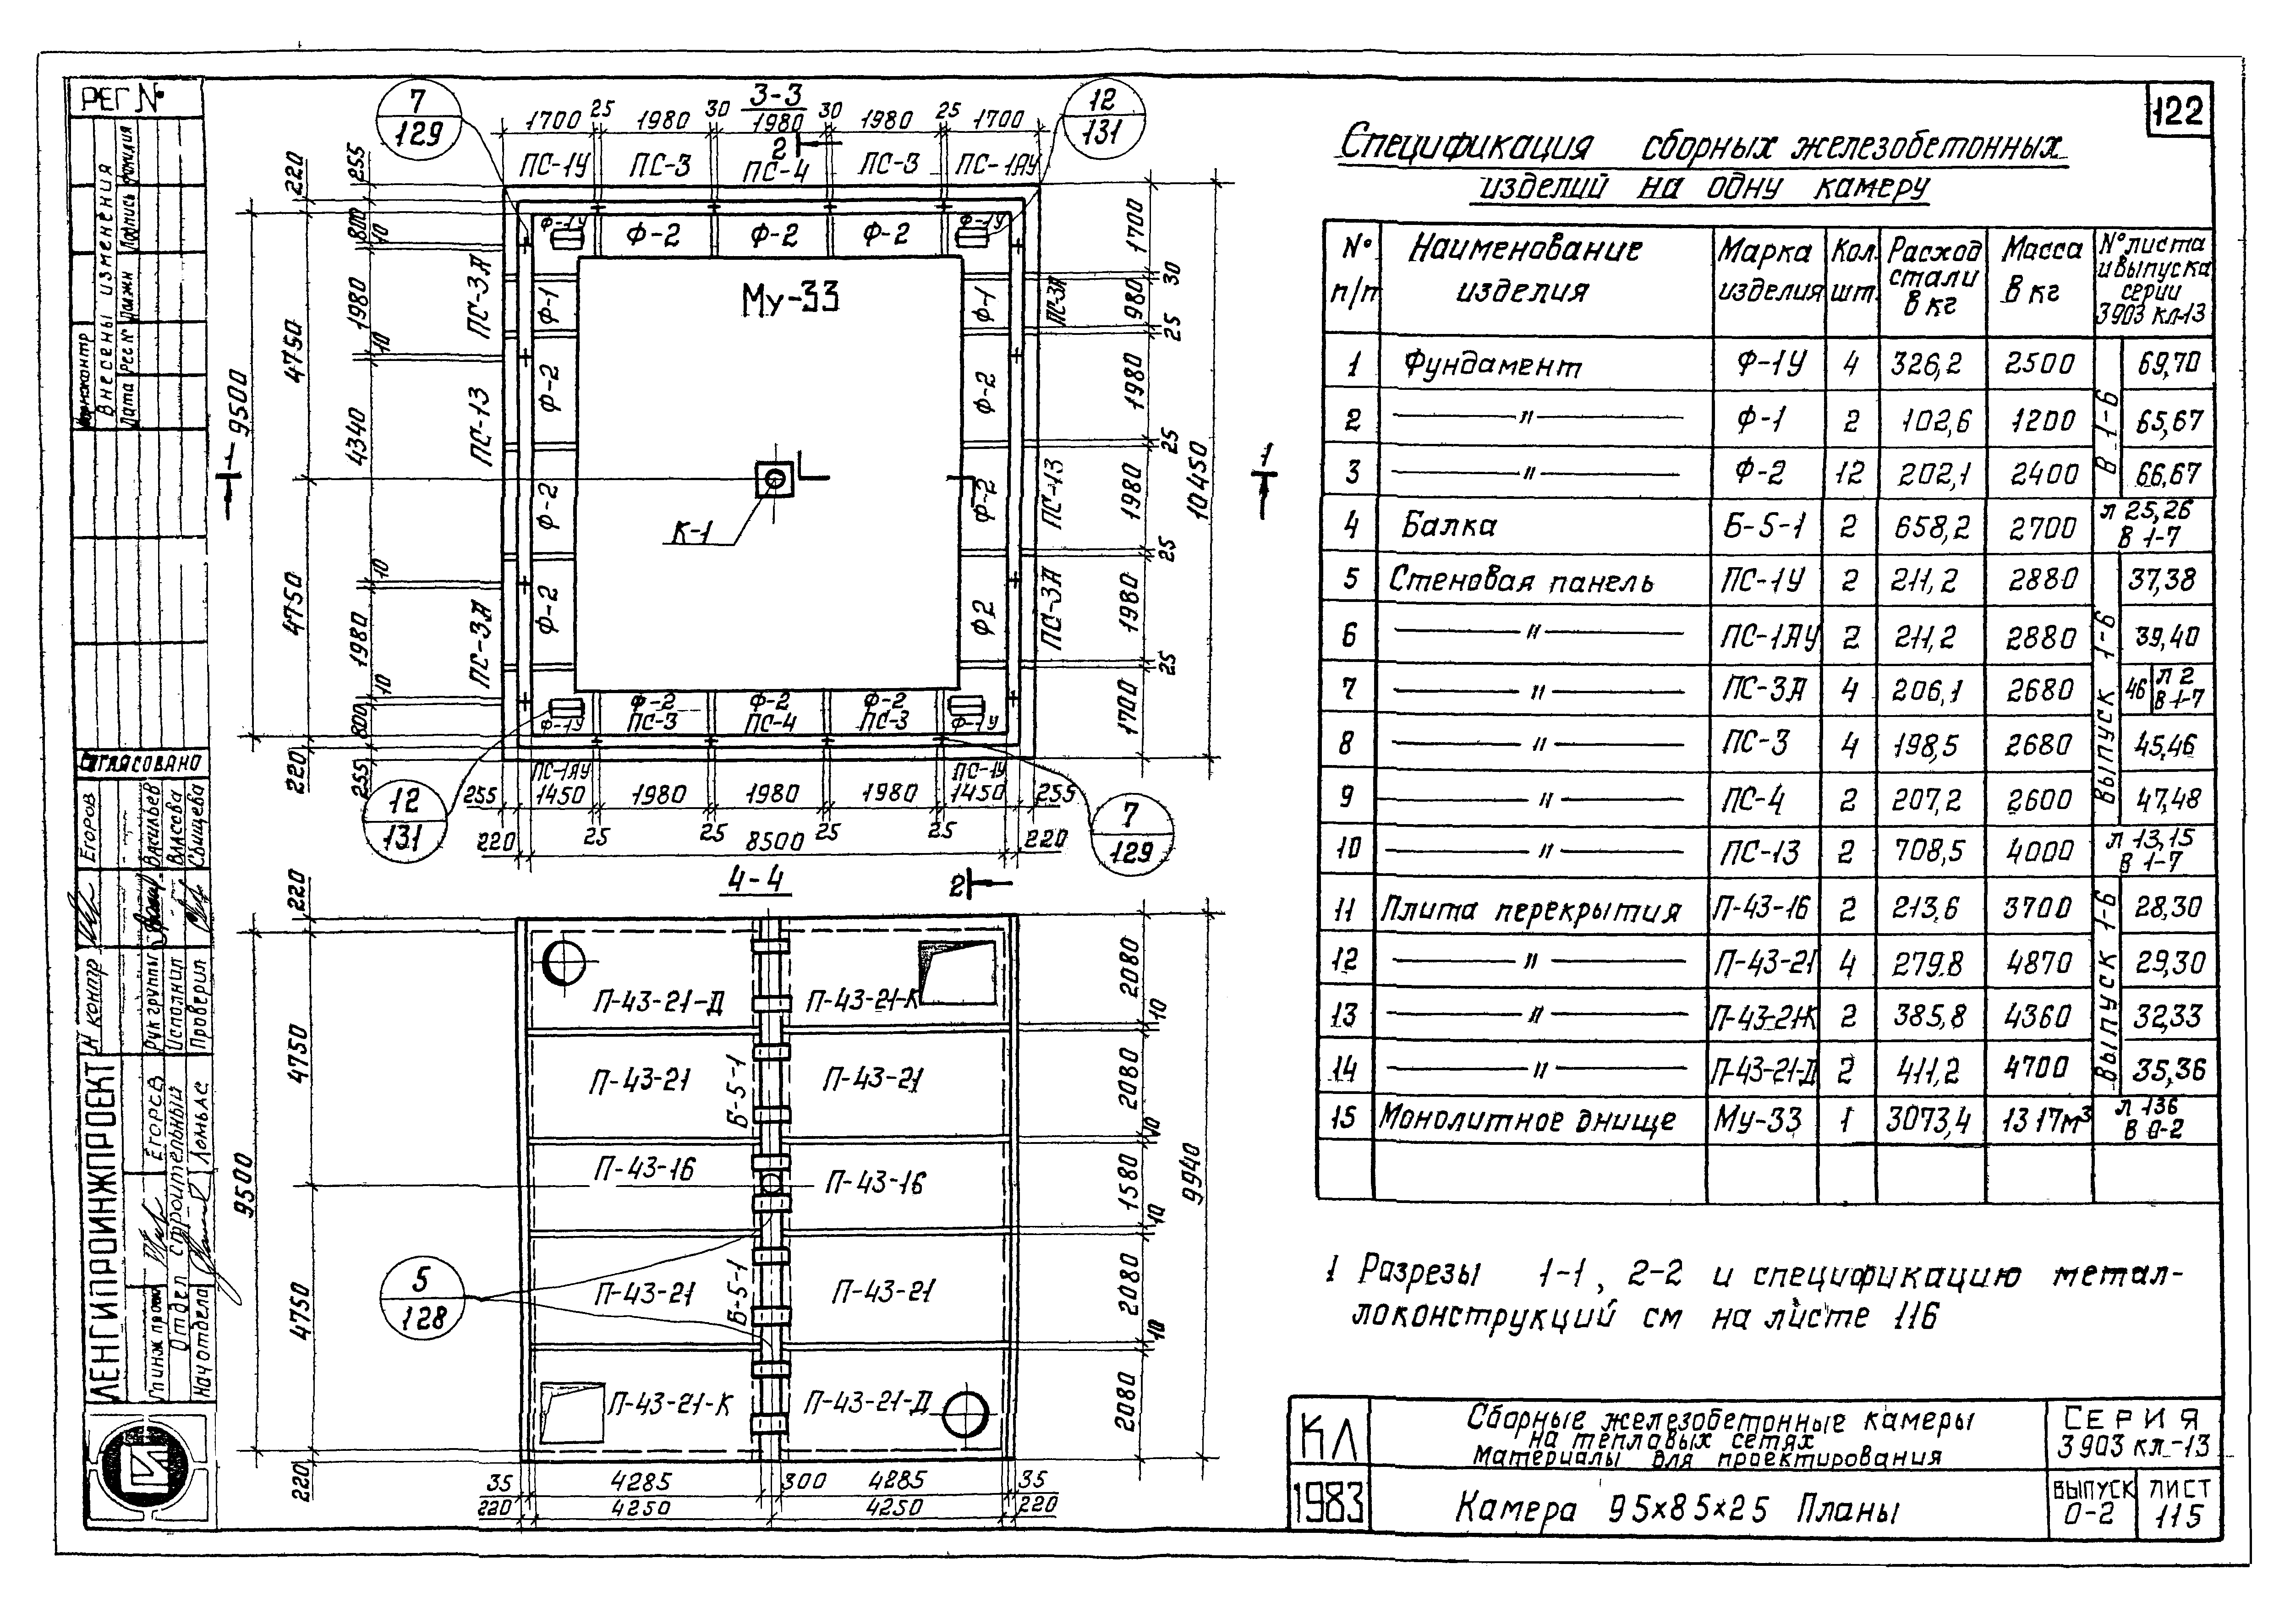 122
РЕГ №
Внесены изменения
Нормоконтр
Дата
Подпись
Фамилия
СОГЛАСОВАНО
Егоров
Васильев
Власова
Свищева
Н контр
Рук группы
Исполнил
Проверил
ЛЕНГИПРОИНЖПРОЕКТ
Егоров
Отдел строительный
Нач отдела
3-3
7
129
12
131
1700 25 1980 30 1980 30 1980 25 1700
2
ПС-1У ПС-3 ПС-4 ПС-3 ПС-1АУ
Ф-1У Ф-2 Ф-2 Ф-2 Ф-1У
Му-33
К-1
220 4750 4750 220
9500
255 800 10 1980 10 4340 10 1980 10 800 255
ПС-3А ПС-13 ПС-3А
Ф-1 Ф-2 Ф-2 Ф-2
Ф-1 Ф-2 Ф-2 Ф2
ПС-3А ПС-13 ПС-3А
1700 30 980 25 1980 25 1980 25 1980 25 1700
10450
1 1
Ф-2 Ф-2 Ф-2
Ф-1У ПС-3 ПС-4 ПС-3 Ф-1У
ПС-1АУ ПС-1У
255 1450 1980 1980 1980 1450 255
25 25 25 25
220 8500 220
12
131
7
129
4-4
2
П-43-21-Д П-43-21-К
П-43-21 Б-5-1 П-43-21
П-43-16 П-43-16
П-43-21 Б-5-1 П-43-21
П-43-21-К П-43-21-Д
5
128
220 4750 4750 220
9500
2080 10 2080 10 1580 10 2080 10 2080
9940
35 4285 300 4285 35
220 4250 4250 220
Спецификация сборных железобетонных
изделий на одну камеру
№ п/п Наименование изделия Марка изделия Кол. шт. Расход стали в кг Масса в кг № листа и выпуска серии 3903 КЛ-13
1 Фундамент Ф-1У 4 326,2 2500 69,70
2 —〃— Ф-1 2 102,6 1200 65,67
3 —〃— Ф-2 12 202,1 2400 66,67
В 1-6
4 Балка Б-5-1 2 658,2 2700 л 25,26 В 1-7
5 Стеновая панель ПС-1У 2 211,2 2880 37,38
6 —〃— ПС-1АУ 2 211,2 2880 39,40
7 —〃— ПС-3А 4 206,1 2680 46 л 2 В 1-7
8 —〃— ПС-3 4 198,5 2680 45,46
9 —〃— ПС-4 2 207,2 2600 47,48
ВЫПУСК 1-6
10 —〃— ПС-13 2 708,5 4000 л 13,15 В 1-7
11 Плита перекрытия П-43-16 2 213,6 3700 28,30
12 —〃— П-43-21 4 279,8 4870 29,30
13 —〃— П-43-21К 2 385,8 4360 32,33
14 —〃— П-43-21-Д 2 411,2 4700 35,36
ВЫПУСК 1-6
15 Монолитное днище Му-33 1 3073,4 13 17м³ л 136 В 0-2
1 Разрезы 1-1, 2-2 и спецификацию метал-
локонструкций см на листе 116
КЛ
1983
Сборные железобетонные камеры
на тепловых сетях
Материалы для проектирования
СЕРИЯ
3 903 кл-13
Камера 95×85×25 Планы
ВЫПУСК
0-2
ЛИСТ
115